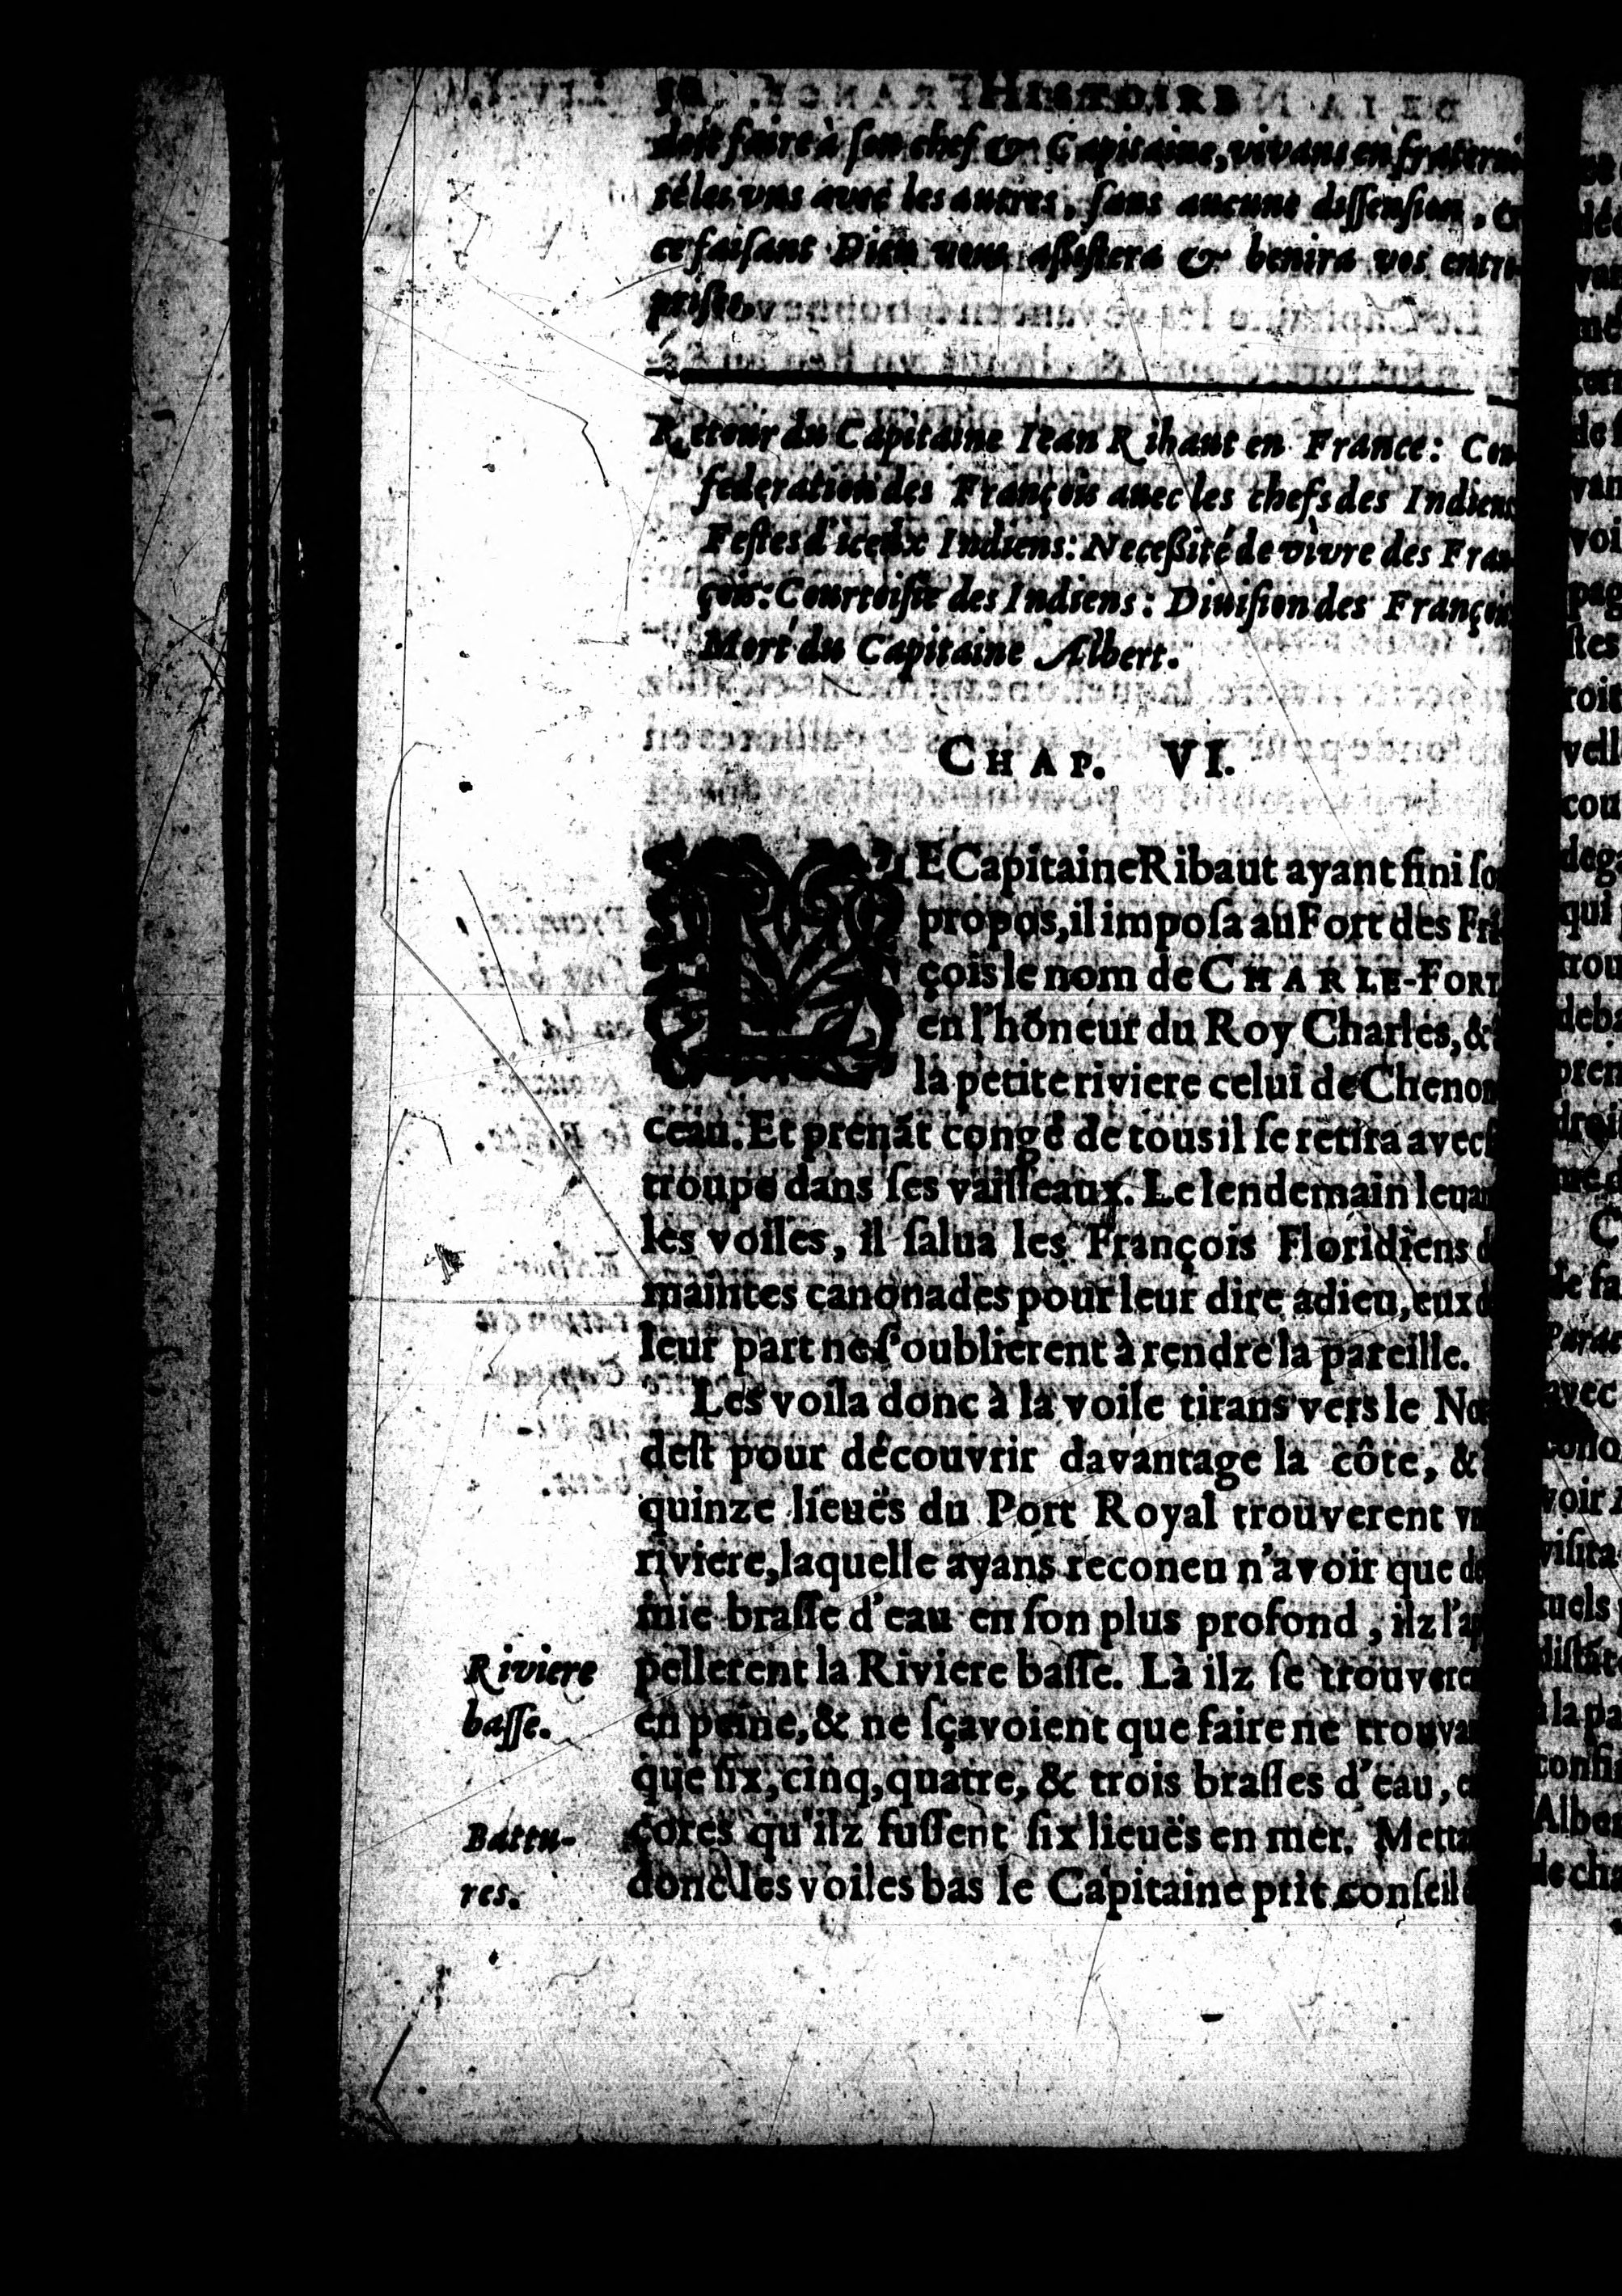 HISTOIRE
doit faire à ſon chef & Capitaine, vivans en fraterni
té les vns avec les autres, ſans aucune diſſenſion, &
ce faiſant Dieu vous aßiſtera & benira vos entre-
priſes.
Retour du Capitaine Iean Ribaut en France: Con-
federation des François auec les chefs des Indiens
Feſtes d'iceux Indiens: Neceßité de vivre des Fran-
çois: Courtoiſie des Indiens: Diuiſion des François
Mort du Capitaine Albert.
CHAP. VI.
LE Capitaine Ribaut ayant fini ſo
propos, il impoſa au Fort des Frã
çois le nom de CHARLE-FORT
en l'hõneur du Roy Charles, &
la petite riviere celui de Chenon
ceau. Et prenãt congé de tous il ſe retira avec ſ
troupe dans ſes vaiſſeaux. Le lendemain leuan
les voiles, il ſalua les François Floridiens d
maintes canonades pour leur dire adieu, eux d
leur part ne ſ'oublierent à rendre la pareille.
Les voila donc à la voile tirans vers le Nor
deſt pour découvrir davantage la côte, &
quinze lieuës du Port Royal trouverent vn
riviere, laquelle ayans reconeu n'avoir que de
mie braſſe d'eau en ſon plus profond, ilz l'ap
Riviere
baſſe.
pellerent la Riviere baſſe. Là ilz ſe trouveren
en peine, & ne ſçavoient que faire ne trouvan
que ſix, cinq, quatre, & trois braſſes d'eau, e
Battu-
res.
cores qu'ilz fuſſent ſix lieuës en mer. Metta
donc les voiles bas le Capitaine prit conſeil d